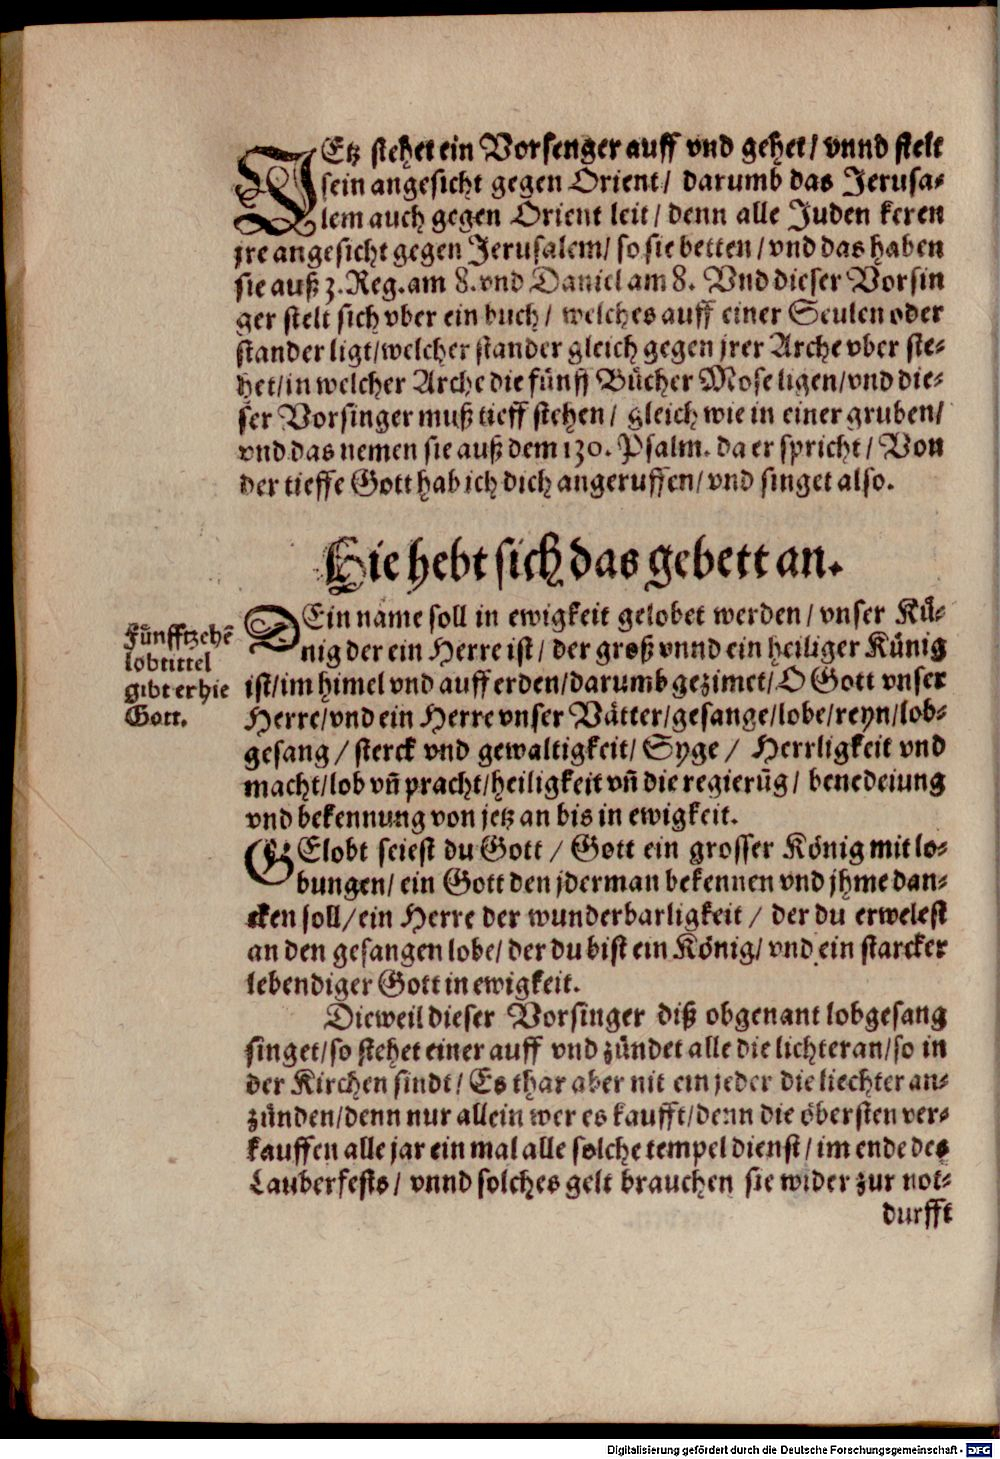 JEtz stehet ein Vorsenger auff vnd gehet / vnnd stelt
sein angesicht gegen Orient / darumb das Jerusa-
lem auch gegen Orient leit / denn alle Juden keren
jre angesicht gegen Jerusalem / so sie betten / vnd das haben
sie auß 3. Reg. am 8. vnd Daniel am 8. Vnd dieser Vorsin
ger stelt sich vber ein buch / welches auff einer Seulen oder
stander ligt / welcher stander gleich gegen jrer Arche vber ste-
het / in welcher Arche die fünff Bücher Mose ligen / vnd die-
ser Vorsinger muß tieff stehen / gleich wie in einer gruben /
vnd das nemen sie auß dem 130. Psalm. da er spricht / Von
der tieffe Gott hab ich dich angeruffen / vnd singet also.
Hie hebt sich das gebett an.
Fünfftzehē
lobtittel
gibt er hie
Gott.
DEin name soll in ewigkeit gelobet werden / vnser Kü-
nig der ein Herre ist / der groß vnnd ein heiliger Künig
ist / im himel vnd auff erden / darumb gezimet / O Gott vnser
Herre / vnd ein Herre vnser Vätter / gesange / lobe / reyn / lob-
gesang / sterck vnd gewaltigkeit / Syge / Herrligkeit vnd
macht / lob vñ pracht / heiligkeit vñ die regierūg / benedeiung
vnd bekennung von jetz an bis in ewigkeit.
GElobt seiest du Gott / Gott ein grosser König mit lo-
bungen / ein Gott den jderman bekennen vnd jhme dan-
cken soll / ein Herre der wunderbarligkeit / der du erwelest
an den gesangen lobe / der du bist ein König / vnd ein starcker
lebendiger Gott in ewigkeit.
Dieweil dieser Vorsinger diß obgenant lobgesang
singet / so stehet einer auff vnd zündet alle die lichter an / so in
der Kirchen sindt / Es thar aber nit ein jeder die liechter an-
zünden / denn nur allein wer es kaufft / denn die öbersten ver-
kauffen alle jar ein mal alle solche tempel dienst / im ende des
Lauberfests / vnnd solches gelt brauchen sie wider zur not-
durfft
Digitalisierung gefördert durch die Deutsche Forschungsgemeinschaft - DFG